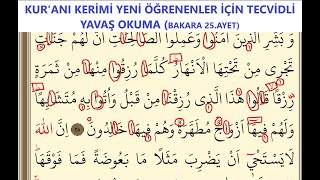 KUR'ANI KERİMİ YENİ ÖĞRENENLER İÇİN TECVİDLİ
YAVAŞ OKUMA (BAKARA 25.AYET)
وَبَشِّرِ الَّذِينَ اٰمَنُوا وَعَمِلُوا الصَّالِحَاتِ اَنَّ لَهُمْ جَنَّاتٍ
تَجْرِى مِنْ تَحْتِهَا الْاَنْهَارُ كُلَّمَا رُزِقُوا مِنْهَا مِنْ ثَمَرَةٍ
رِزْقًا قَالُوا هٰذَا الَّذِى رُزِقْنَا مِنْ قَبْلُ وَاُتُوا بِهِ مُتَشَابِهًا
وَلَهُمْ فِيهَا اَزْوَاجٌ مُطَهَّرَةٌ وَهُمْ فِيهَا خَالِدُونَ اِنَّ اللّٰهَ
لَا يَسْتَحْيِى اَنْ يَضْرِبَ مَثَلًا مَا بَعُوضَةً فَمَا فَوْقَهَا